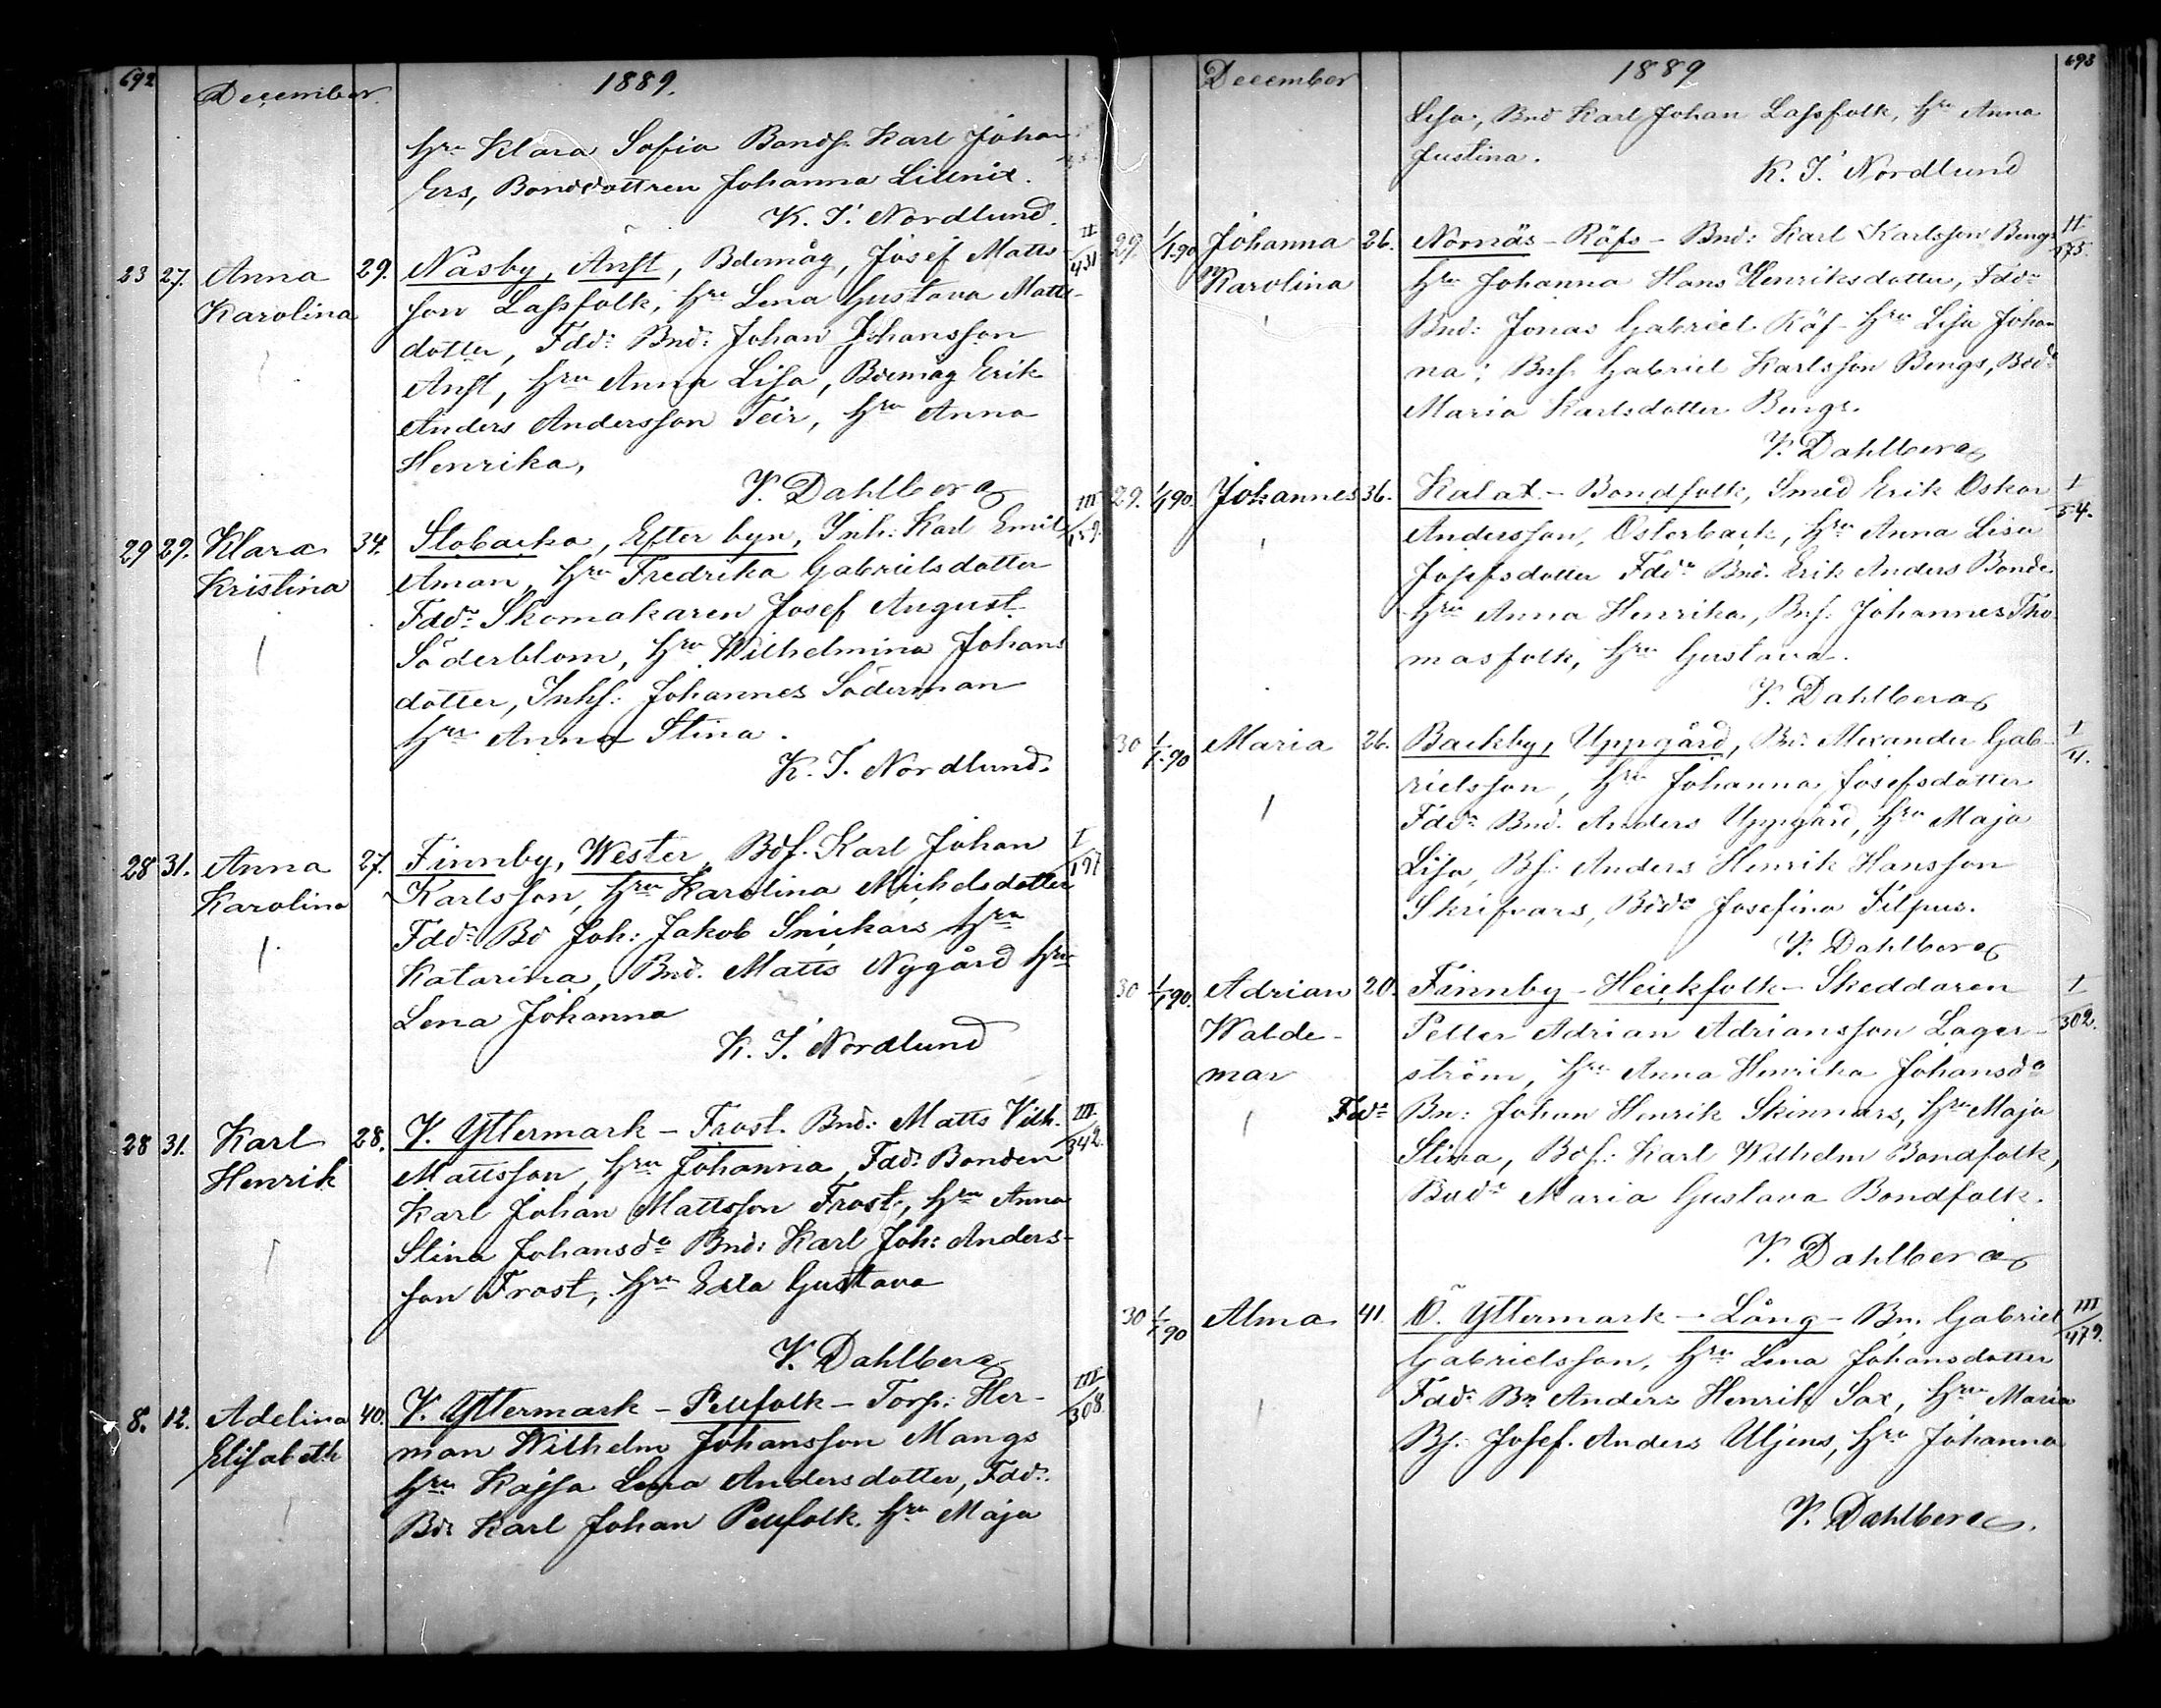 692
December.
1889.
hru Klara Sofia Bands. Karl Johan
Ers, Bonddottren Johanna Lillnix.
K. I. Nordlund.
23 27. Anna 29. Näsby, Anst, Bdemåg, Josef Matts- II/431
Karolina son Lassfolk, hru Lena Gustava Matts-
dotter, Fdd: Bnd: Johan Johansson
Anst, hru Anna Lisa, Bdemåg Erik
Anders Andersson Teir, hru Anna
Henrika,
V. Dahlberg
29 29. Klara 34. Slobacka, Efter byn, Inh: Karl Emil III
Kristina Åman, hru Fredrika Gabrielsdotter
Fdd: Skomakaren Josef August
Söderblom, hru Wilhelmina Johans
dotter, Inhs: Johannes Söderman
hru Anna Stina.
K. I. Nordlund.
28 31. Anna 27. Finnby, Wester, Bdf. Karl Johan I/197
Karolina Karlsson, hru Karolina Michelsdotter
Fdd: Bd Joh: Jakob Snickars hru
Katarina, Bnd. Matts Nygård hru
Lena Johanna
K. I. Nordlund
28 31. Karl 28. V. Yttermark – Frost. Bnd: Matts Vilh. III/342.
Henrik Mattsson, hru Johanna, Fdd: Bonden
Karl Johan Mattsson Frost, hru Anna
Stina Johansda Bnd: Karl Joh: Anders-
son Frost, hru Edla Gustava
V. Dahlberg
8. 12. Adelina 40. V. Yttermark – Pellfolk – Torp: Her- III/308
Elisabeth man Wilhelm Johansson Mangs
hru Kajsa Lena Andersdotter, Fdd:
Bd: Karl Johan Pellfolk, hru Maja
693
December
1889
Lisa, Bnd Karl Johan Lassfolk, hru Anna
Justina.
K. I. Nordlund
29. 1/1 90 Johanna 26. Nornäs – Räfs – Bnd: Karl Karlsson Bengs II/175.
Karolina hru Johanna Hans Henriksdotter, Fdda
Bnd: Jonas Gabriel Räf – hru Lisa Johan
na; Bns. Gabriel Karlsson Bengs, Bdda
Maria Karlsdotter Bengs.
V. Dahlberg
29. 1/1 90. Johannes 36. Kalax – Bondfolk, Smed Erik Oskar I/54.
Andersson, Österback, hru Anna Lisa
Josefsdotter Fdda Bnd. Erik Anders Bonde.
hru Anna Henrika, Bns: Johannes Tho
masfolk, hru Gustava.
V. Dahlberg
30 1/1 90 Maria 26. Backby, Uppgård, Bd: Alexander Gab- I/11.
rielsson, hru Johanna Josefsdotter
Fdda Bnd. Anders Uppgård, hru Maja
Lisa, Bs: Anders Henrik Hansson
Skrifvars, Bdda Josefina Filpus.
V. Dahlberg
30 1/1 90. Adrian 20. Finnby – Heickfolk – Skeddaren I/302.
Walde- Petter Adrian Adriansson Lager-
mar ström, hru Anna Henrika Johansda
Fdda Bn: Johan Henrik Skinnars, hru Maja
Stina, Bds: Karl Wilhelm Bondfolk,
Bdda Maria Gustava Bondfolk.
V. Dahlberg
30 1/1 90 Alma 41. Ö. Yttermark – Lång – Bn. Gabriel III/479.
Gabrielsson, hru Lena Johansdotter
Fdd: Bn Anders Henrik Sax, hru Maria
Bs. Josef Anders Uljens, hru Johanna
V. Dahlberg.